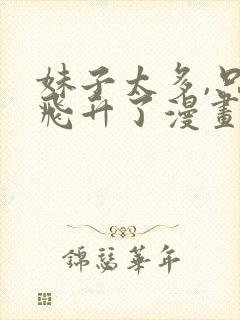 妹子太多,只
飛升了漫畫
錦瑟華年